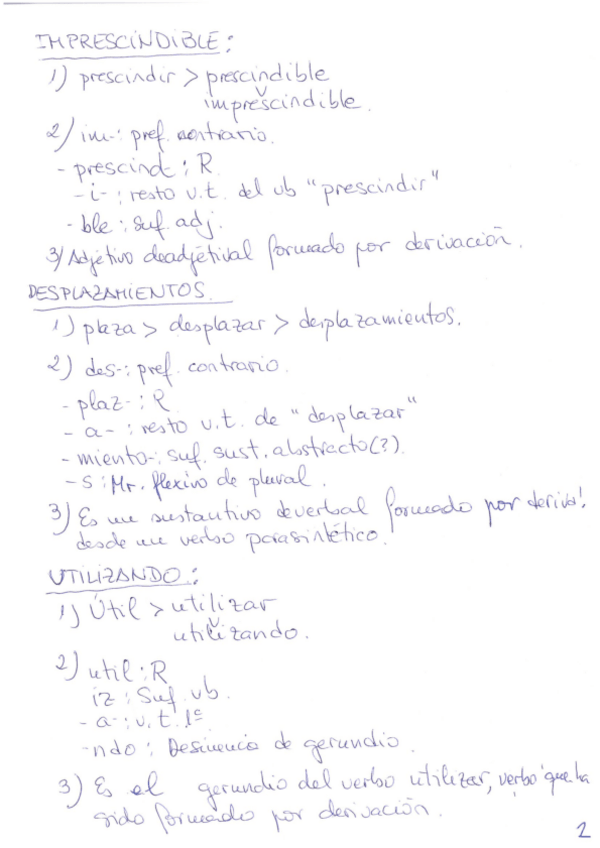 IMPRESCINDIBLE:
1) prescindir > prescindible
imprescindible.
2) im-: pref. contrario.
- prescind: R
- i- : resto v.t. del vb "prescindir"
- ble: suf. adj.
3) Adjetivo deadjetival formado por derivación.
DESPLAZAMIENTOS
1) plaza > desplazar > desplazamientos.
2) des-: pref. contrario.
- plaz-: R
- a- : resto v.t. de "desplazar"
- miento-: suf. sust. abstracto(?).
- s: Mr. flexivo de plural.
3) Es un sustantivo deverbal formado por deriva!
desde un verbo parasintético.
UTILIZANDO:
1) Útil > utilizar
utilizando.
2) util: R
iz: Suf. vb.
- a-: v.t. 1ª
- ndo: Desinencia de gerundio.
3) Es el gerundio del verbo utilizar, verbo que ha
sido formado por derivación.
2